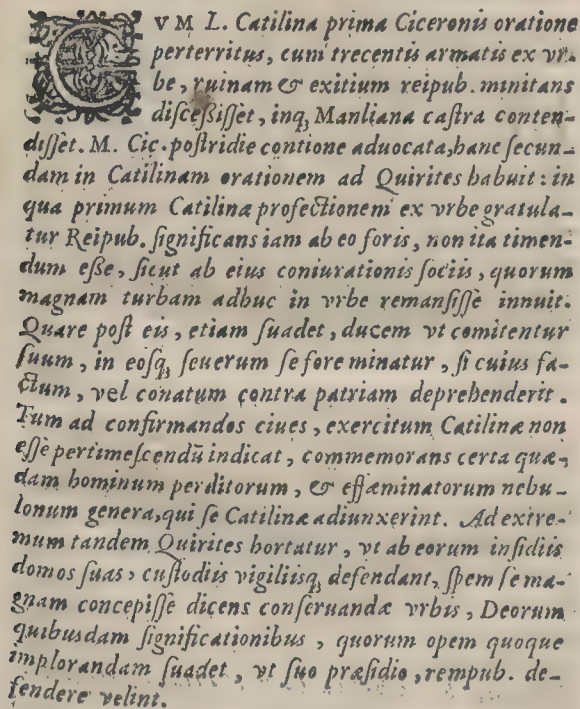 CVM L. Catilina prima Ciceronis oratione
perterritus, cum trecentis armatis ex vr-
be, ruinam & exitium reipub. minitans
diſceſsiſſet, inq; Manliana caſtra conten-
diſſet. M. Cic. poſtridie contione aduocata, hanc ſecun-
dam in Catilinam orationem ad Quirites habuit: in
qua primum Catilinæ profectionem ex vrbe gratula-
tur Reipub. ſignificans iam ab eo foris, non ita timen-
dum eſſe, ſicut ab eius coniurationis ſociis, quorum
magnam turbam adhuc in vrbe remanſiſſe innuit.
Quare poſt eis, etiam ſuadet, ducem vt comitentur
ſuum, in eoſq; ſeuerum ſe fore minatur, ſi cuius fa-
ctum, vel conatum contra patriam deprehenderit.
Tum ad confirmandos ciues, exercitum Catilinæ non
eſſe pertimeſcendū indicat, commemorans certa quæ-
dam hominum perditorum, & effæminatorum nebu-
lonum genera, qui ſe Catilinæ adiunxerint. Ad extre-
mum tandem Quirites hortatur, vt ab eorum inſidiis
domos ſuas, cuſtodiis vigiliisq; defendant, ſpem ſe ma-
gnam concepiſſe dicens conſeruandæ vrbis, Deorum
quibuſdam ſignificationibus, quorum opem quoque
implorandam ſuadet, vt ſuo præſidio, rempub. de-
fendere velint.